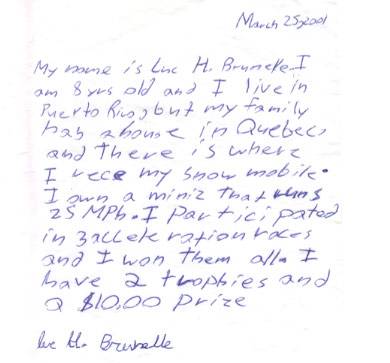 March 25, 2001
My name is Luc H. Brunelle. I
am 8 yrs old and I live in
Puerto Rico, but my family
has a house in Quebec,
and there is where
I rece my snow mobile.
I own a mini z that runs
25 MPh. I participated
in 3 accleteration races
and I won them all. I
have 2 trophies and
a $10.00 prize
Luc H. Brunelle